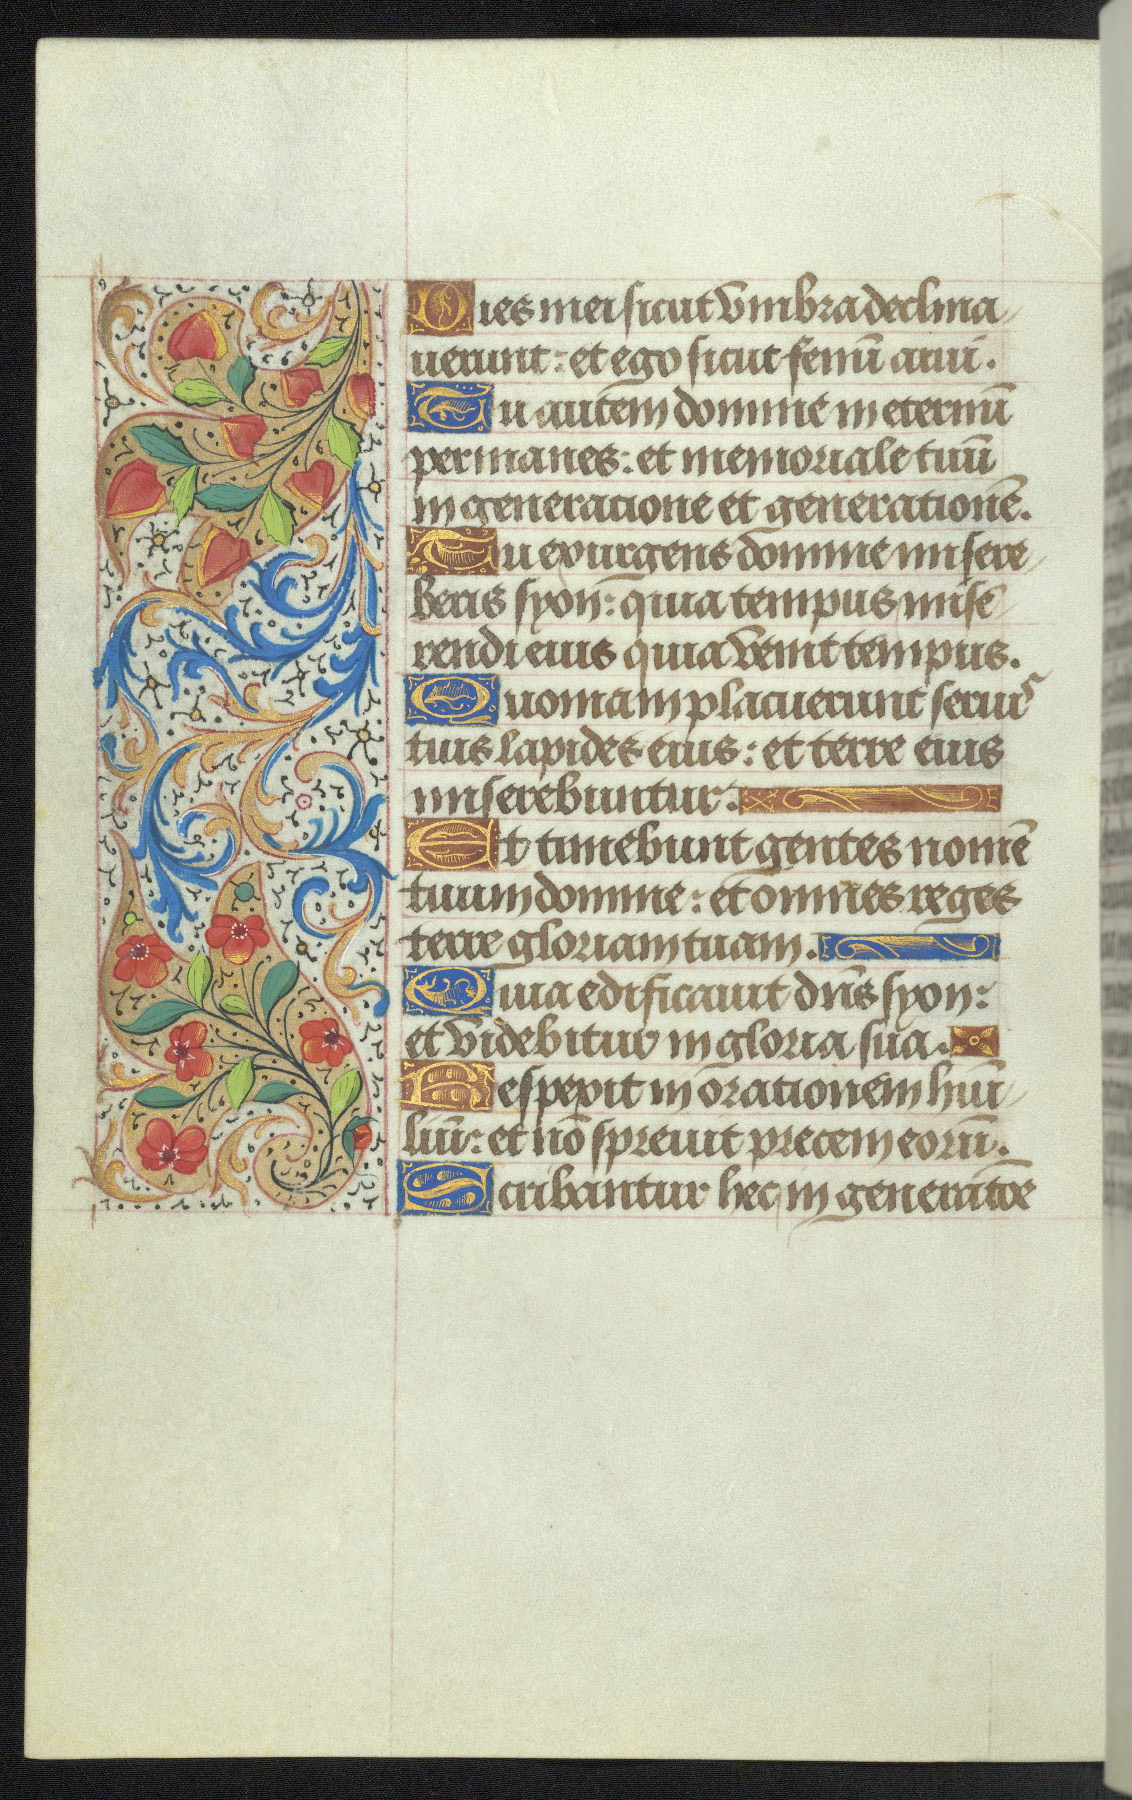 Dies mei sicut vmbra declina
uerunt: et ego sicut fenū arui.
Tu autem domine in eternū
permanes: et memoriale tuū
in generacione et generationē.
Tu exurgens domine misere
beris syon: quia tempus mise
rendi eius quia venit tempus.
Quoniam placuerunt seruis
tuis lapides eius: et terre eius
miserebuntur.
Et timebunt gentes nomē
tuum domine: et omnes reges
terre gloriam tuam.
Quia edificauit dn̄s syon:
et videbitur in gloria sua.
Respexit in orationem humi
liū: et nō spreuit precem eorū.
Scribantur hec in generatiōe